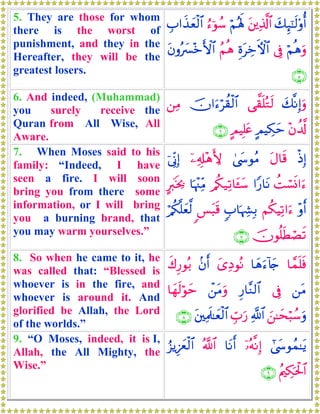 5. They are those for whom
there is the worst of
punishment, and they in the
Hereafter, they will be the
greatest losers.
أُوْلَـٰٓئِكَ ٱلَّذِينَ لَهُمْ سُوٓءُ ٱلْعَذَابِ
وَهُمْ فِى ٱلْأَخِرَةِ هُمُ ٱلْأَخْسَرُونَ
﴿٥﴾
6. And indeed, (Muhammad)
you surely receive the
Quran from All Wise, All
Aware.
وَإِنَّكَ لَتُلَقَّى ٱلْقُرْءَانَ مِن
لَّدُنْ حَكِيمٍ عَلِيمٍ ﴿٦﴾
7. When Moses said to his
family: “Indeed, I have
seen a fire. I will soon
bring you from there some
information, or I will bring
you a burning brand, that
you may warm yourselves.”
إِذْ قَالَ مُوسَىٰ لِأَهْلِهِۦٓ إِنِّىٓ
ءَانَسْتُ نَارًا سَـَٔاتِيكُم مِّنْهَا بِخَبَرٍ
أَوْ ءَاتِيكُم بِشِهَابٍ قَبَسٍ لَّعَلَّكُمْ
تَصْطَلُونَ ﴿٧﴾
8. So when he came to it, he
was called that: “Blessed is
whoever is in the fire, and
whoever is around it. And
glorified be Allah, the Lord
of the worlds.”
فَلَمَّا جَآءَهَا نُودِىَ أَنۢ بُورِكَ
مَن فِى ٱلنَّارِ وَمَنْ حَوْلَهَا
وَسُبْحَـٰنَ ٱللَّهِ رَبِّ ٱلْعَـٰلَمِينَ ﴿٨﴾
9. “O Moses, indeed, it is I,
Allah, the All Mighty, the
Wise.”
يَـٰمُوسَىٰٓ إِنَّهُۥٓ أَنَا ٱللَّهُ ٱلْعَزِيزُ
ٱلْحَكِيمُ ﴿٩﴾